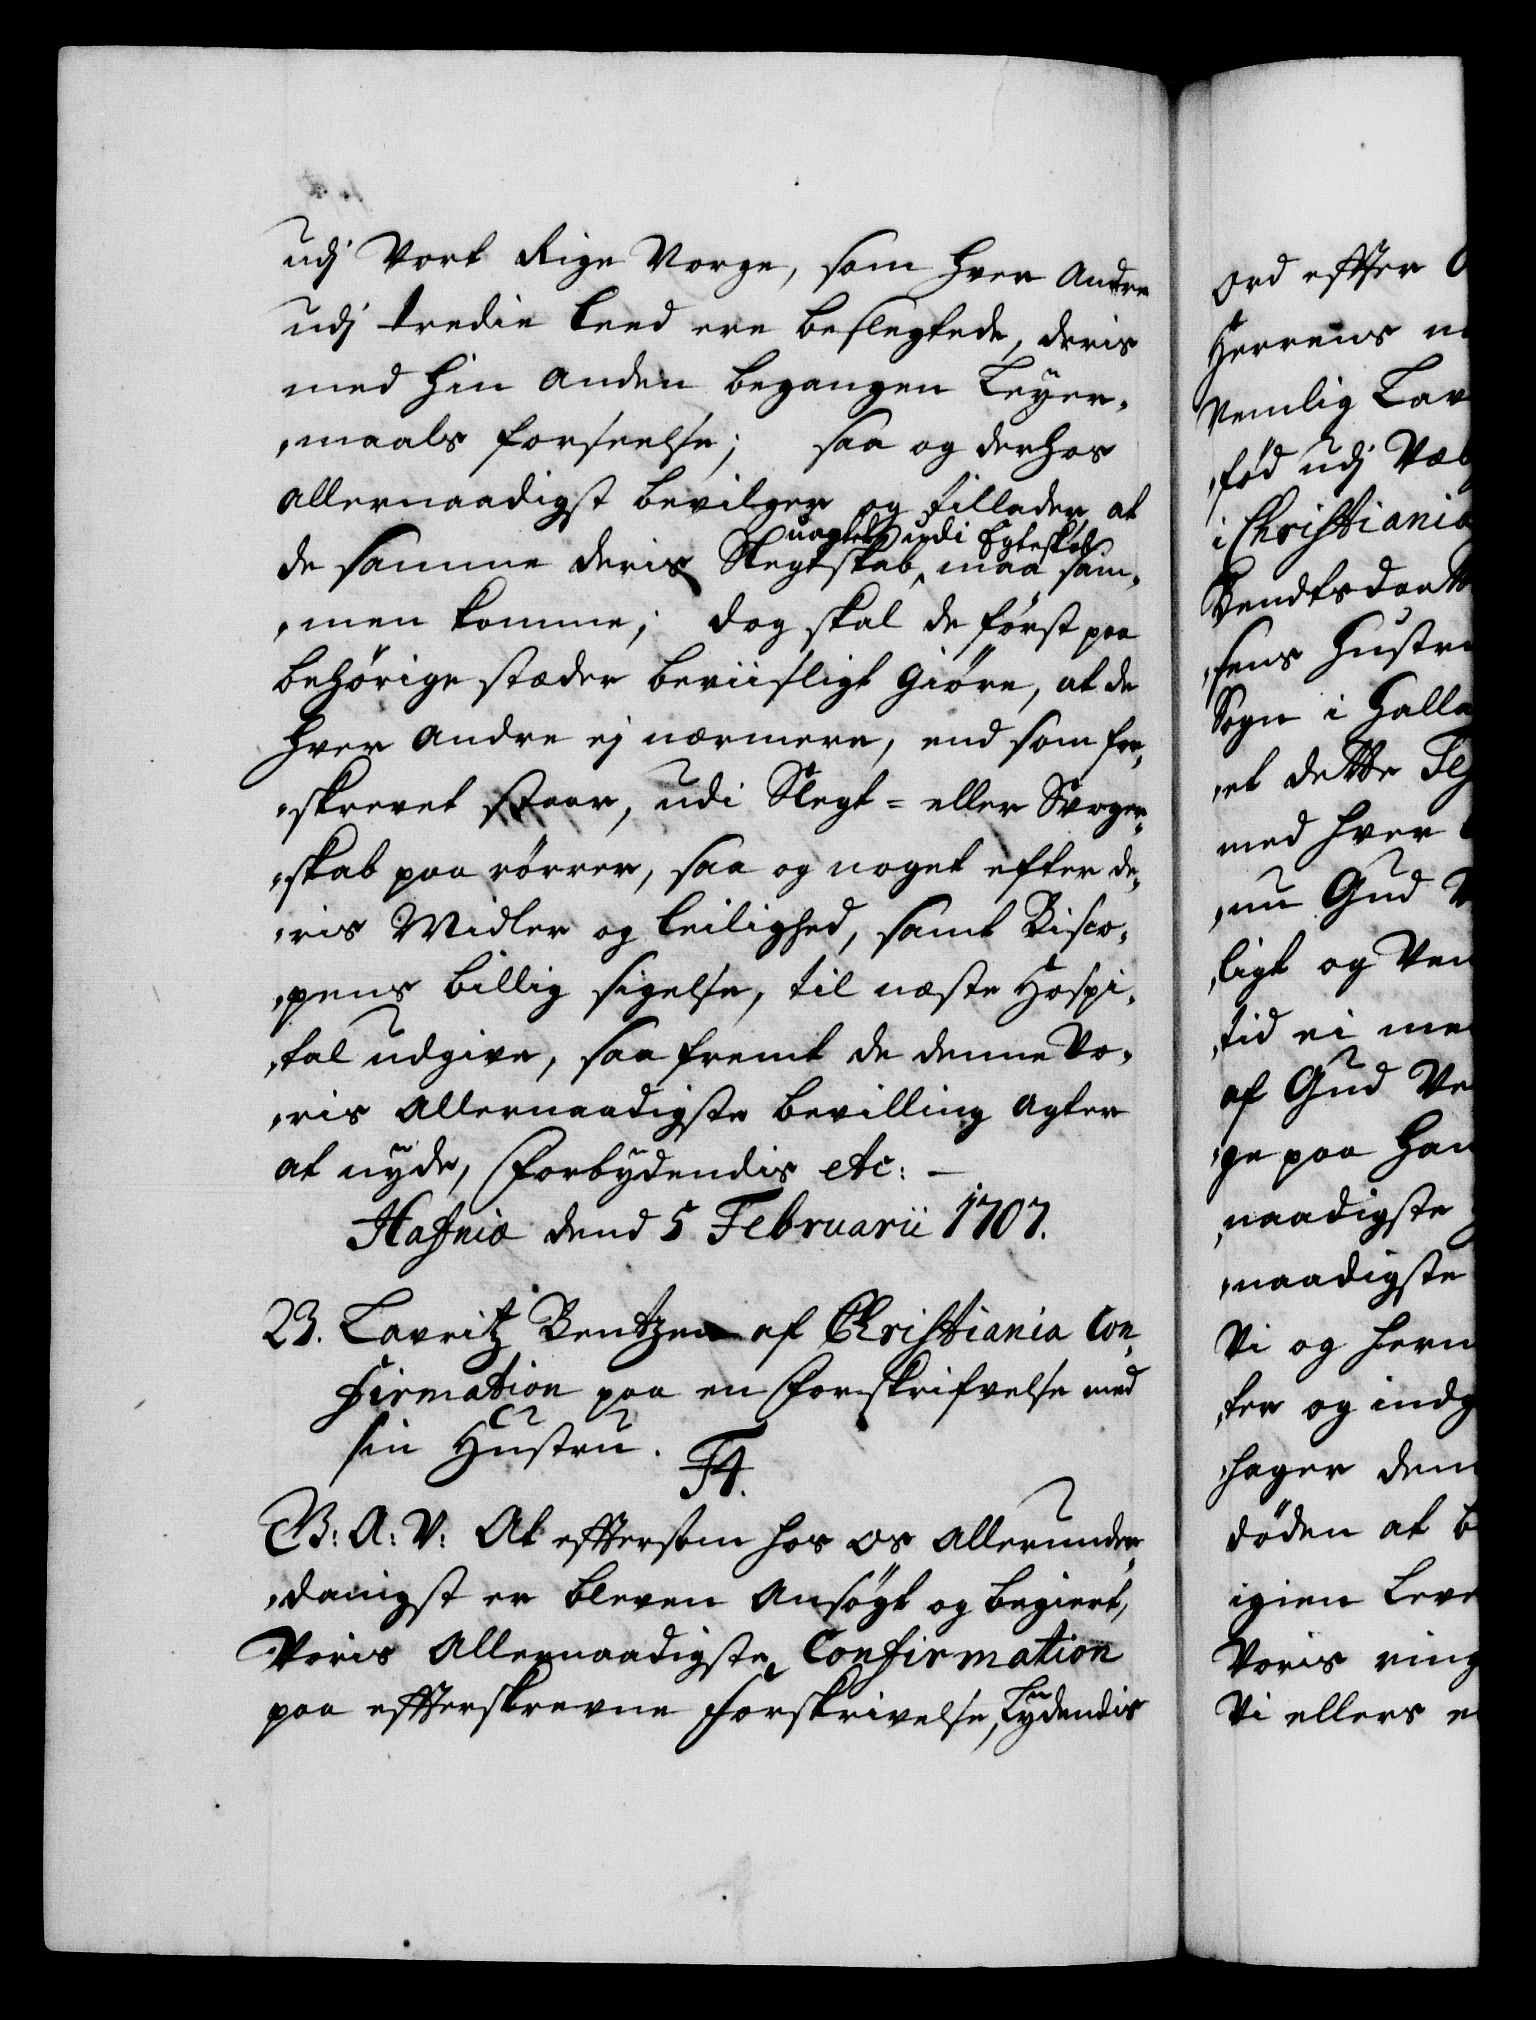 udj Vort Rige Norge, som hver Andre
udj tredie Leed ere beslegtede, deris
med hin anden begangen Leÿer-
maals forseelse; saa og derhos
allernaadigst bevilger og tillader, at
uagtet udi Egteskab
de samme deris Slegtskab, maa sam-
men komme; dog skal de først paa
behørige stæder beviisligt giøre, at de
hver andre ej nærmere, end som for-
skrevet staar, udi Slegt= eller Svoger-
skab paa rörrer, saa og noget efter de-
ris Midler og leilighed, samt Bisco-
pens billig sigelse, til næste Hospi-
tal udgive, saafremt de denne Vo-
ris allernaadigste bevilling agter
at nÿde, Forbÿdendis etc: —
Hafniæ dend 5 Februarii 1707.
23. Lavritz Bentzen af Christiania Con-
firmation paa en Forskrifvelse med
sin Hustru.
F4.
G: A: V: At efftersom hos os allerunder-
danigst er bleven ansøgt og begiert,
Voris allernaadigste Confirmation
paa effterskrevne Forskrivelse, Lÿdendis
Ord effter
Herrens
Nemlig Lav
fød udj
i Christiania
Bendtsdaatt
sens Hustru
Sogn i Halla
et dette
med hver
nu Gud
ligt og Ven
tid ei me
af Gud Ve
ge paa
naadigste
naadigste
Vi og
ter og indg
hager dem
døden at
igien leve
Voris ring
Vi ellers